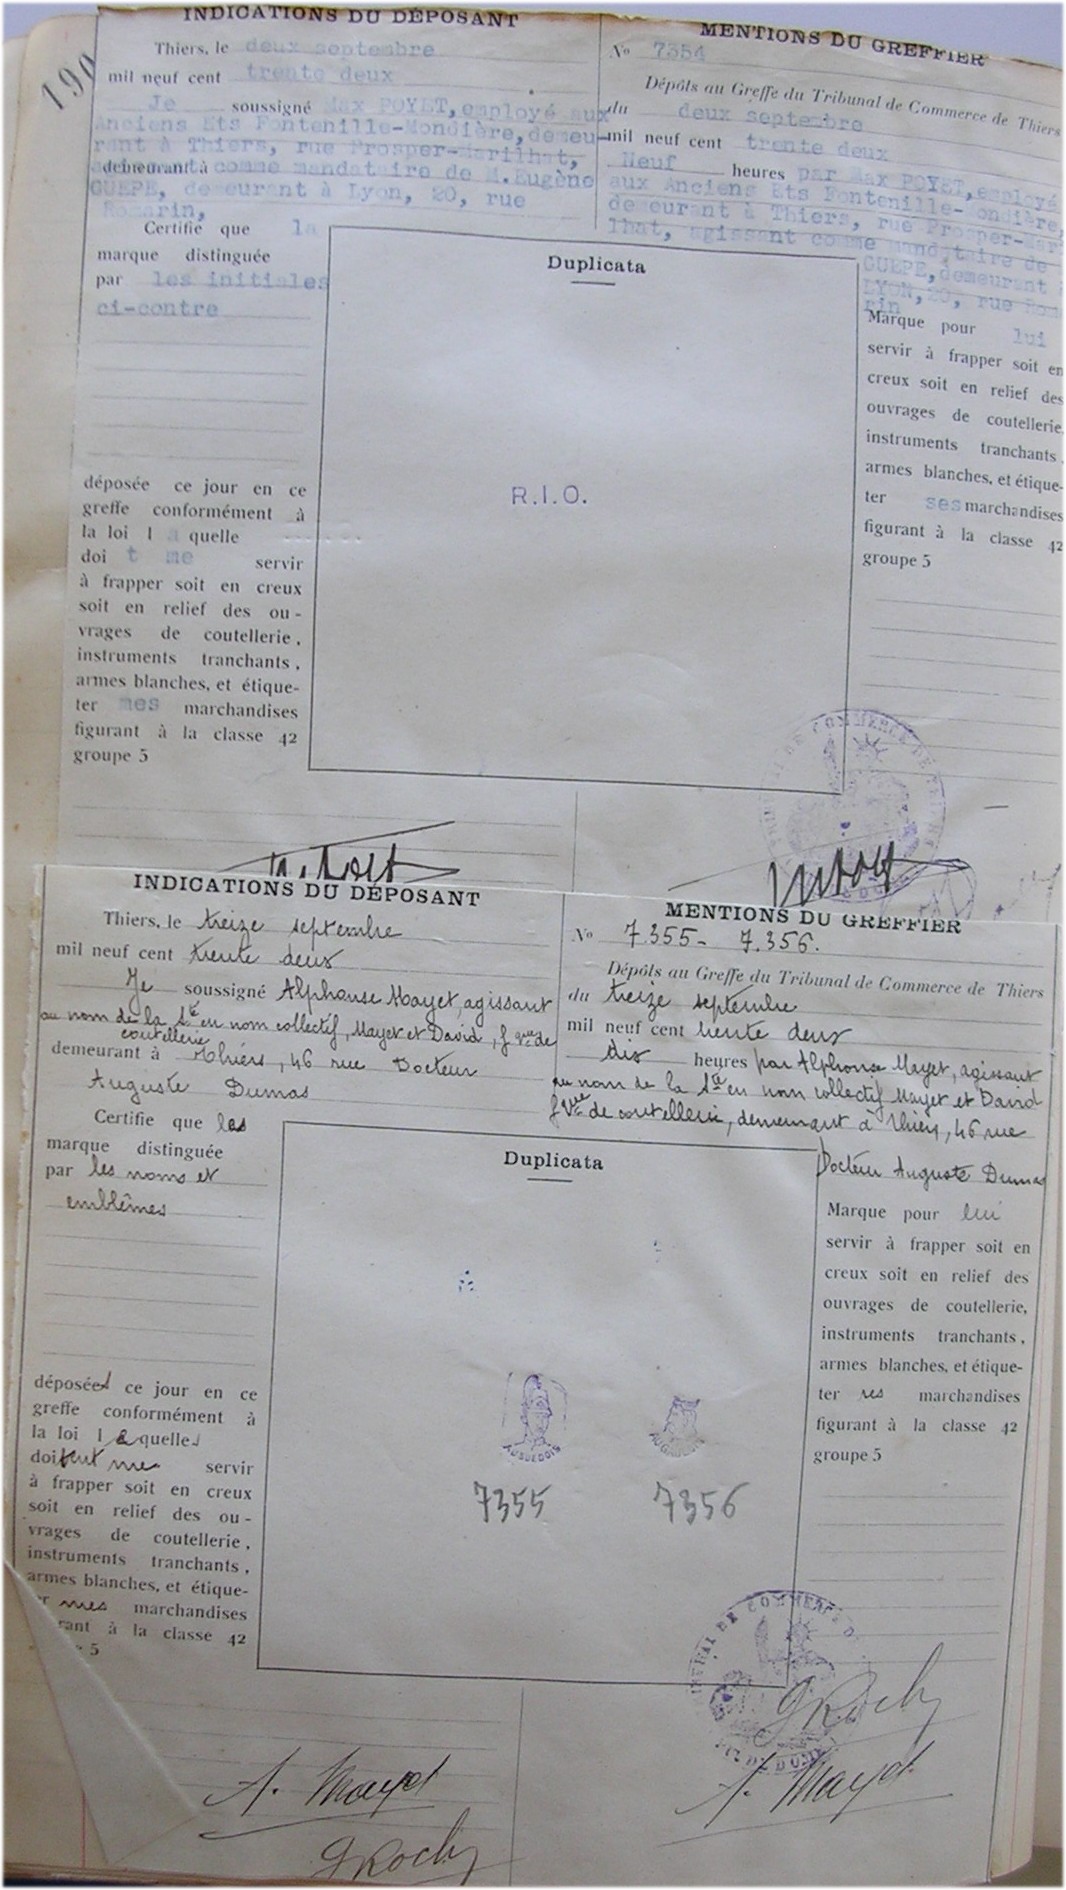 190
INDICATIONS DU DÉPOSANT
Thiers, le deux septembre
mil neuf cent trente deux
Je soussigné Max POYET, employé aux
Anciens Ets Fontenille-Mondière, demeu-
rant à Thiers, rue Prosper-Marilhat,
demeurant à comme mandataire de M. Eugène
GUEPE, demeurant à Lyon, 20, rue
Romarin,
Certifie que la
marque distinguée
par les initiales
ci-contre
déposée ce jour en ce
greffe conformément à
la loi l a quelle
doi t me servir
à frapper soit en creux
soit en relief des ou-
vrages de coutellerie,
instruments tranchants,
armes blanches, et étique-
ter mes marchandises
figurant à la classe 42
groupe 5
Duplicata
R.I.O.
MENTIONS DU GREFFIER
No 7354
Dépôts au Greffe du Tribunal de Commerce de Thiers
du deux septembre
mil neuf cent trente deux
Neuf heures par Max POYET, employé
aux Anciens Ets Fontenille-Mondière,
demeurant à Thiers, rue Prosper-Mari
lhat, agissant comme mandataire de
GUEPE, demeurant à
LYON, 20, rue Roma
rin
Marque pour lui
servir à frapper soit en
creux soit en relief des
ouvrages de coutellerie,
instruments tranchants,
armes blanches, et étique-
ter ses marchandises
figurant à la classe 42
groupe 5
INDICATIONS DU DÉPOSANT
Thiers, le treize septembre
mil neuf cent trente deux
Je soussigné Alphonse Mayet, agissant
au nom de la Sté en nom collectif, Mayet et David, f que de
coutellerie
demeurant à Thiers, 46 rue Docteur
Auguste Dumas
Certifie que les
marque distinguée
par les noms et
emblêmes
déposées ce jour en ce
greffe conformément à
la loi l a quelles
doivent me servir
à frapper soit en creux
soit en relief des ou-
vrages de coutellerie,
instruments tranchants,
armes blanches, et étique-
er mes marchandises
rant à la classe 42
5
Duplicata
AUBUEDOIS
7355 7356
MENTIONS DU GREFFIER
No 7.355 - 7.356.
Dépôts au Greffe du Tribunal de Commerce de Thiers
du treize septembre
mil neuf cent trente deux
dix heures par Alphonse Mayet, agissant
au nom de la Sté en nom collectif Mayet et David
fque de coutellerie, demeurant à Thiers, 46 rue
Docteur Auguste Dumas
Marque pour lui
servir à frapper soit en
creux soit en relief des
ouvrages de coutellerie,
instruments tranchants,
armes blanches, et étique-
ter ses marchandises
figurant à la classe 42
groupe 5
A. Mayet
GRoche
GRoche
A. Mayet